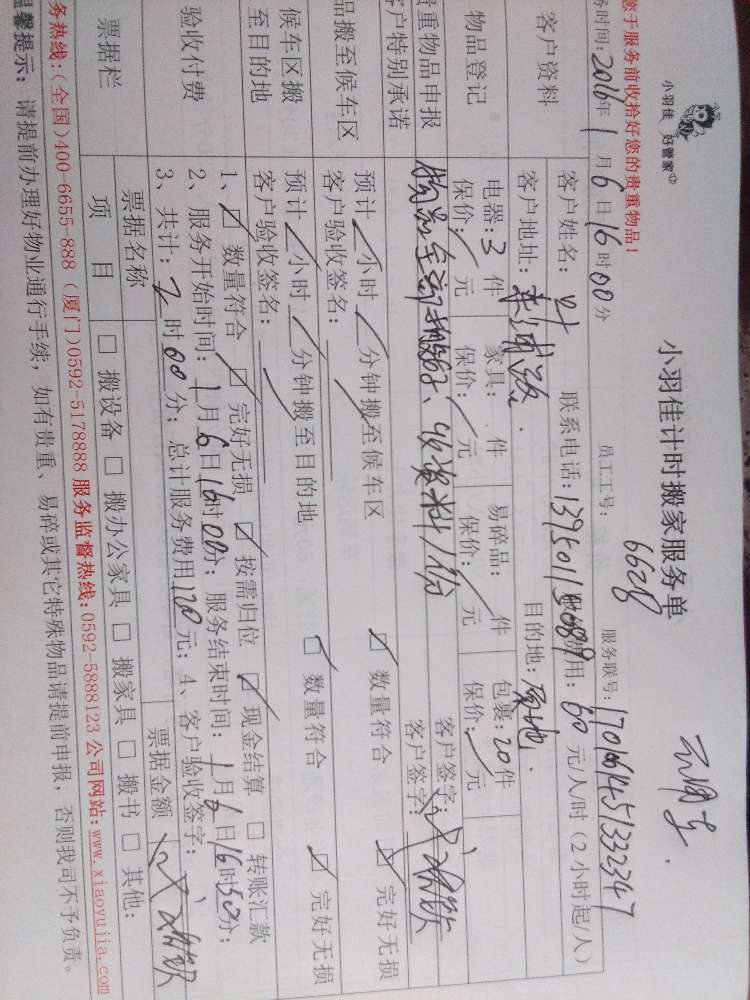 小羽佳 好管家
小羽佳计时搬家服务单
您于服务前收拾好您的贵重物品!
员工工号: 6628 服务联号: 1701661451332347
务时间: 2016年1月6日16时00分
客户资料
客户姓名: 叶 联系电话: 费用: 60元/人/时(2小时起/人)
客户地址: 目的地: 原地.
物品登记
电器: 3件 家具: 件 易碎品: 件 包裹: 20件
保价: / 元 保价: / 元 保价: / 元 保价: / 元
客户签字:
贵重物品申报
客户特别承诺
客户签字:
品搬至候车区
预计 / 小时 / 分钟搬至候车区 ☑ 数量符合 ☑ 完好无损
客户验收签名:
候车区搬至目的地
预计 / 小时 / 分钟搬至目的地 ☑ 数量符合 ☑ 完好无损
客户验收签名:
验收付费
1、☑ 数量符合 ☑ 完好无损 ☑ 按需归位 ☑ 现金结算 □ 转账汇款
2、服务开始时间: 1月6日16时00分; 服务结束时间: 1月6日16时50分;
3、共计: 2时00分; 总计服务费用120元; 4、客户验收签字:
票据栏
票据名称 票据金额
项 目 □ 搬设备 □ 搬办公家具 □ 搬家具 □ 搬书 □ 其他:
务热线:(全国)400-6655-888 (厦门)0592-5178888 服务监督热线:0592-5888123 公司网站:www.xiaoyujia.com
温馨提示: 请提前办理好物业通行手续, 如有贵重、易碎或其它特殊物品请提前申报, 否则我司不予负责。